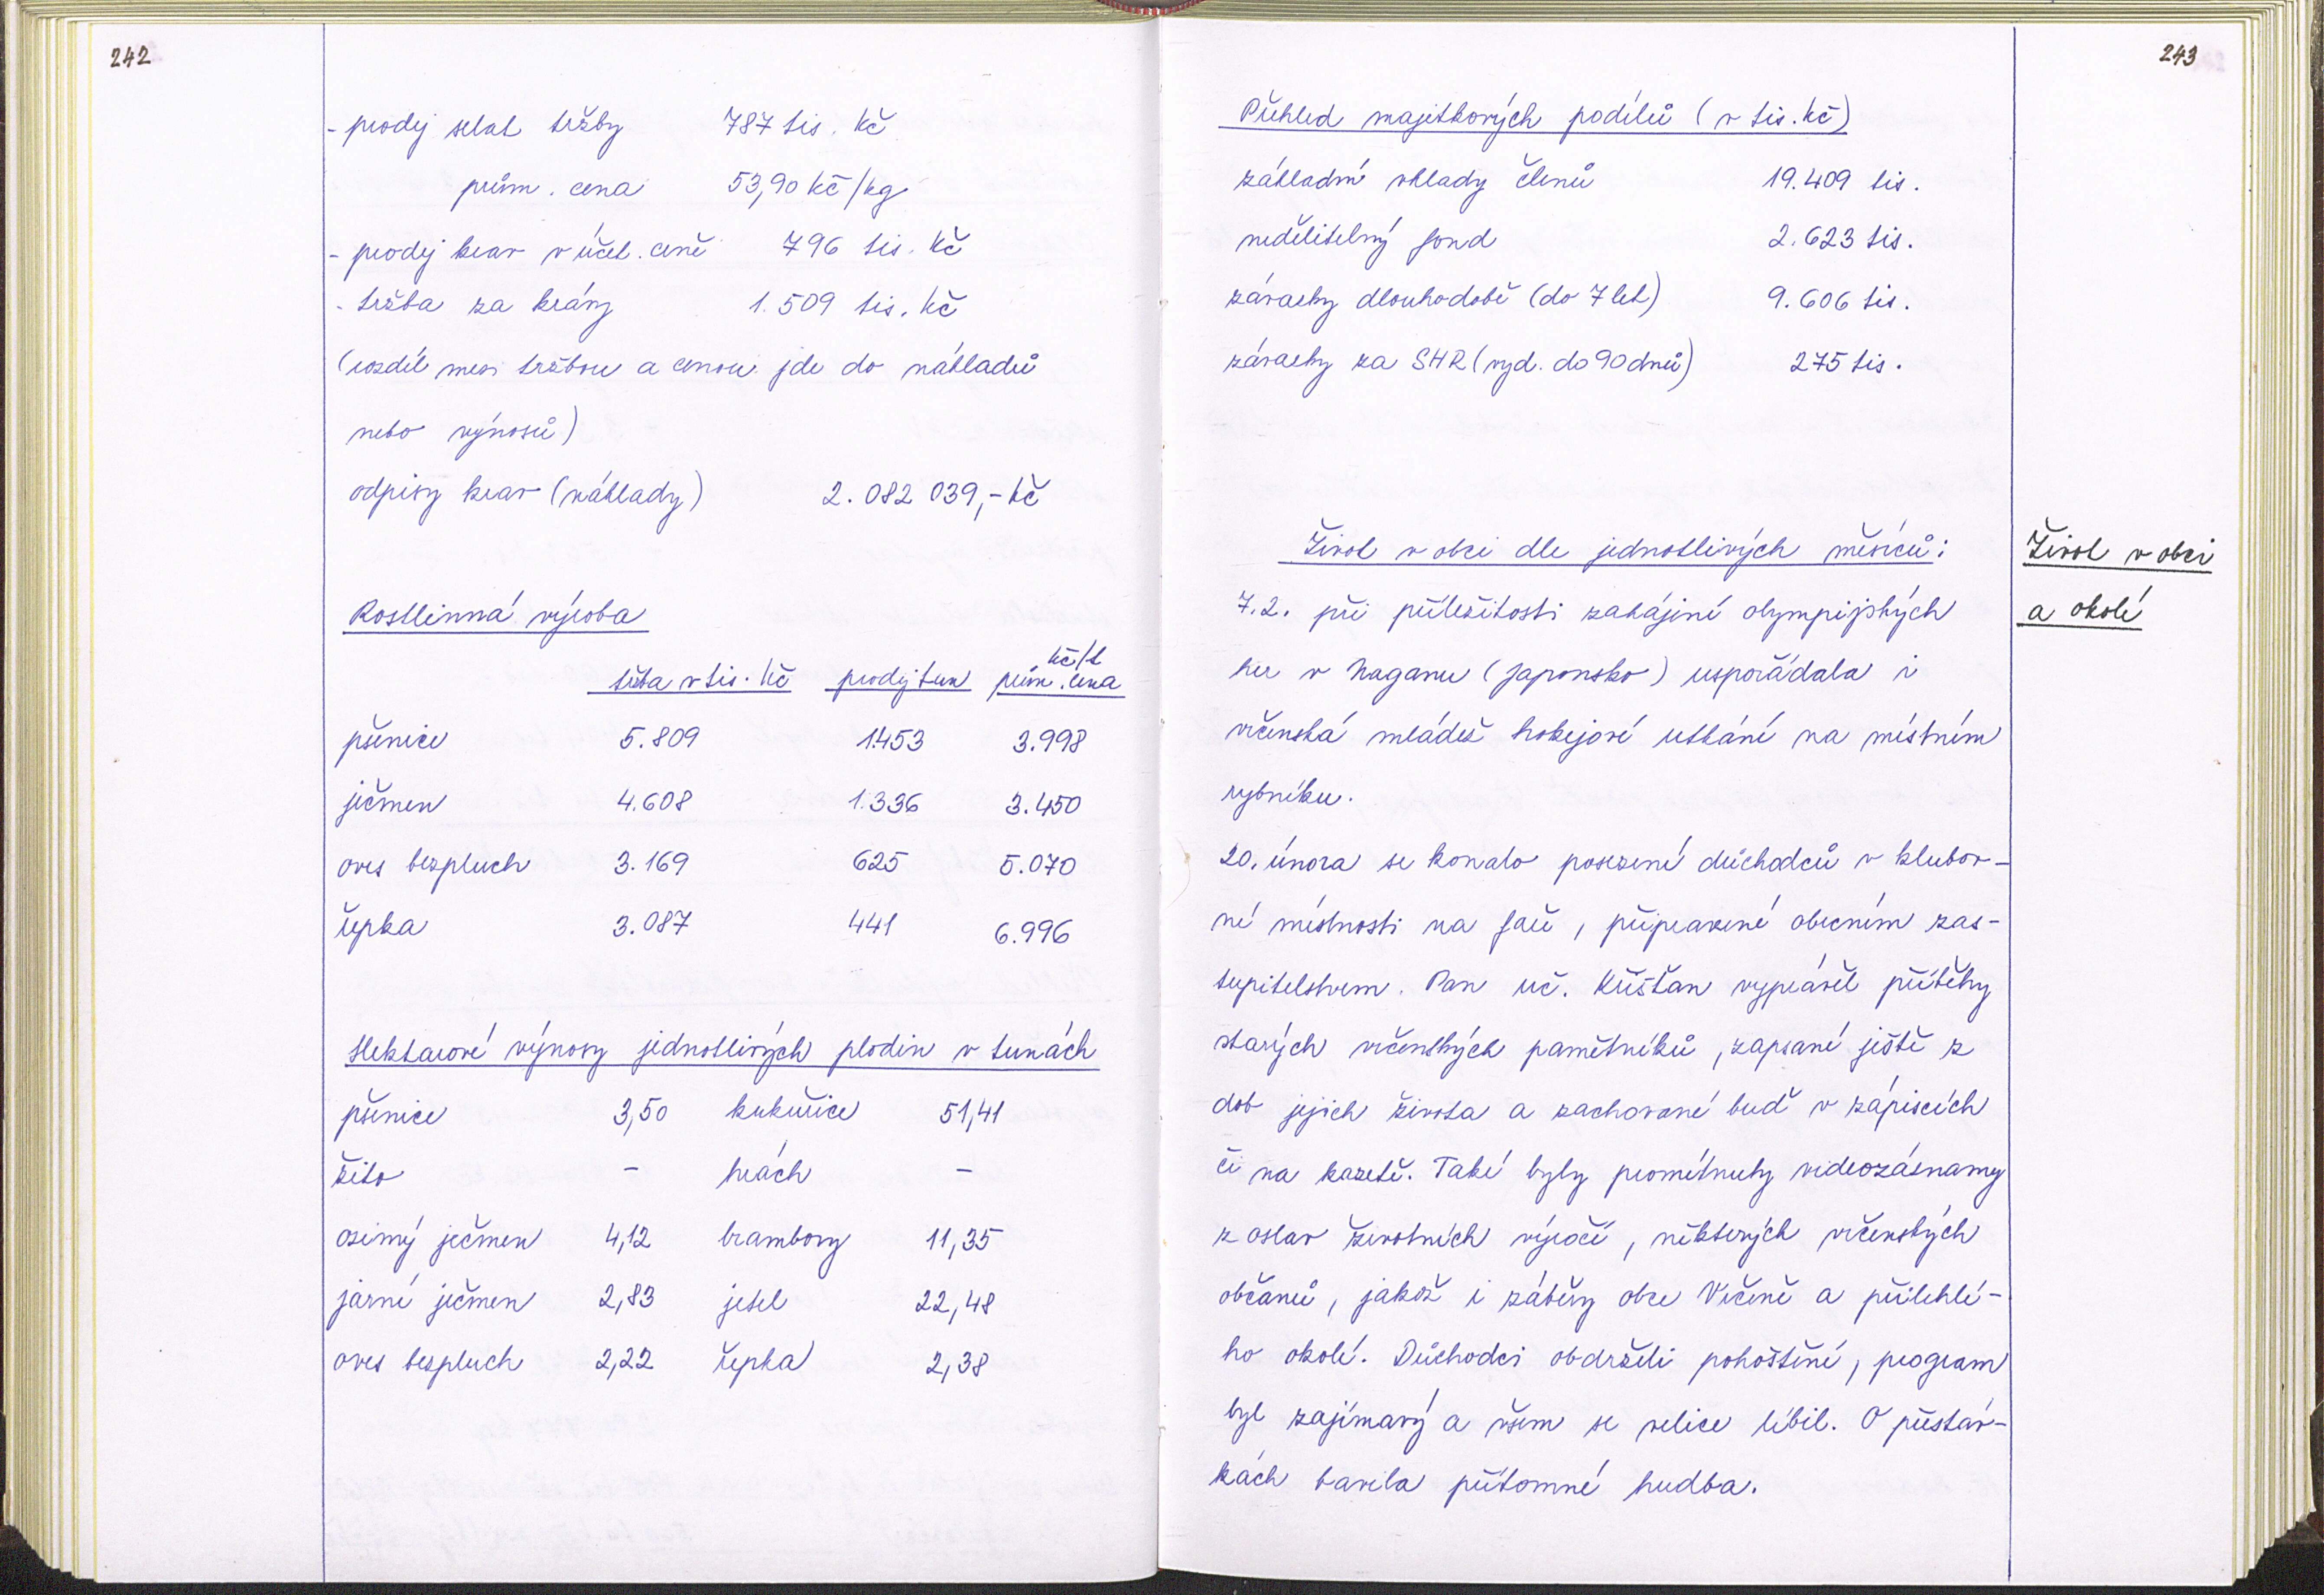 242
- prodej selat tržby 787 tis. Kč
prům. cena 53,90 Kč/kg
- prodej krav v účet. ceně 796 tis. Kč
- tržba za krávy 1.509 tis. Kč
(rozdíl mezi tržbou a cenou jde do nákladů
nebo výnosů)
odpisy krav (náklady) 2.082 039,- Kč
Rostlinná výroba
Kč/t
tržba v tis. Kč prodej tun prům. cena
pšenice 5.809 1.453 3.998
ječmen 4.608 1.336 3.450
oves bezpluch 3.169 625 5.070
řepka 3.087 441 6.996
Hektarové výnosy jednotlivých plodin v tunách
pšenice 3,50 kukuřice 51,41
žito - hrách -
ozimý ječmen 4,12 brambory 11,35
jarní ječmen 2,83 jetel 22,48
oves bezpluch 2,22 řepka 2,38
243
Přehled majetkových podílů (v tis. Kč)
základní vklady členů 19.409 tis.
nedělitelný fond 2.623 tis.
závazky dlouhodobé (do 7 let) 9.606 tis.
závazky za SHR (vyd. do 90 dnů) 275 tis.
Život v obci dle jednotlivých měsíců:
Život v obci
a okolí
7.2. při příležitosti zahájení olympijských
her v Naganu (Japonsko) uspořádala i
vičenská mládež hokejové utkání na místním
rybníku.
20. února se konalo posezení důchodců v klubov-
ně místnosti na faře, připravené obecním zas-
tupitelstvem. Pan uč. Křišťan vyprávěl příběhy
starých vičenských pamětníků, zapsané ještě z
dob jejich života a zachované buď v zápiscích
či na kazetě. Také byly promítnuty videozáznamy
z oslav životních výročí, některých vičenských
občanů, jakož i záběry obce Vičině a přilehlé-
ho okolí. Důchodci obdrželi pohoštění, program
byl zajímavý a všem se velice líbil. O přestáv-
kách bavila přítomné hudba.